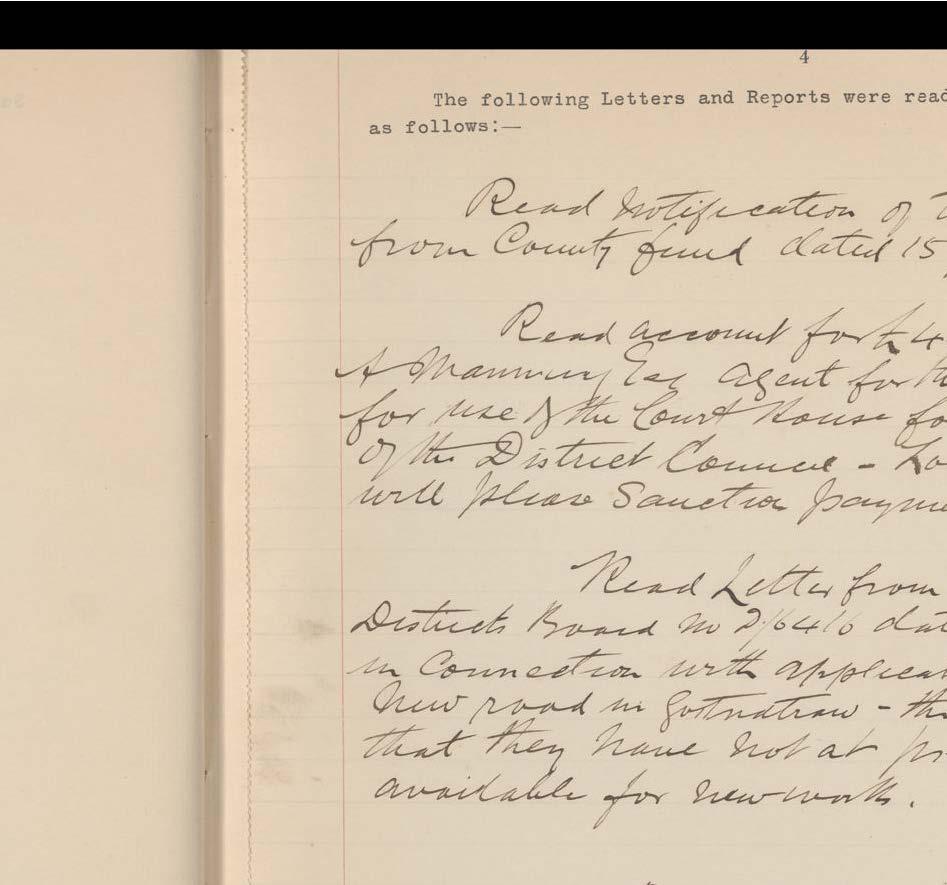 4
The following Letters and Reports were read
as follows:—
Read Notification of
from County fund dated 15
Read account for £4
A Manning Esq Agent for th
for use of the Court House fo
of the District Council - Lo
will please Sanction payme
Read Letter from
Districts Board No dat
in Connection with applica
New road in - the
that they have not at pr
available for new work.